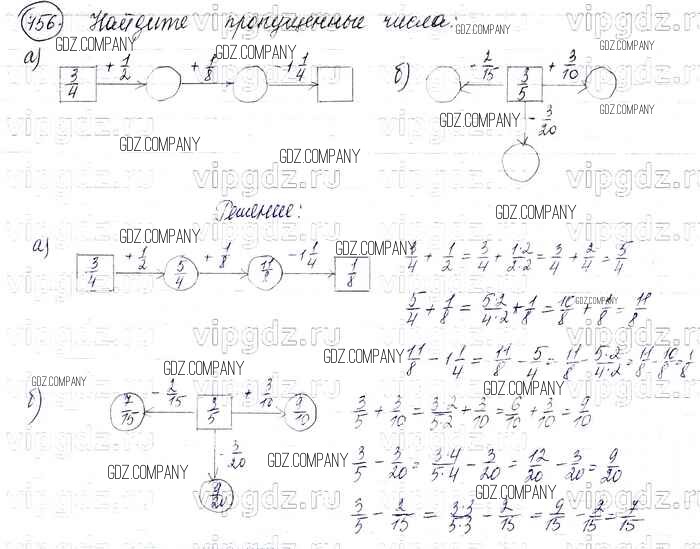 756. Найдите пропущенные числа:
а) 3/4 + 1/2 + 1/8 - 1 1/4
б) - 2/15 3/5 + 3/10
- 3/20
Решение:
а) 3/4 + 1/2 5/4 + 1/8 11/8 - 1 1/4 1/8
1/2 = 3/4 + 1·2/2·2 = 3/4 + 2/4 = 5/4
5/4 + 1/8 = 5·2/4·2 + 1/8 = 10/8 + 1/8 = 11/8
11/8 - 1 1/4 = 11/8 - 5/4 = 11/8 - 5·2/4·2 = 11/8 - 10/8 = 1/8
б) 7/15 - 2/15 3/5 + 3/10 9/10
- 3/20
9/20
3/5 + 3/10 = 3·2/5·2 + 3/10 = 6/10 + 3/10 = 9/10
3/5 - 3/20 = 3·4/5·4 - 3/20 = 12/20 - 3/20 = 9/20
3/5 - 2/15 = 3·3/5·3 - 2/15 = 9/15 - 2/15 = 7/15
GDZ.COMPANY
vipgdz.ru